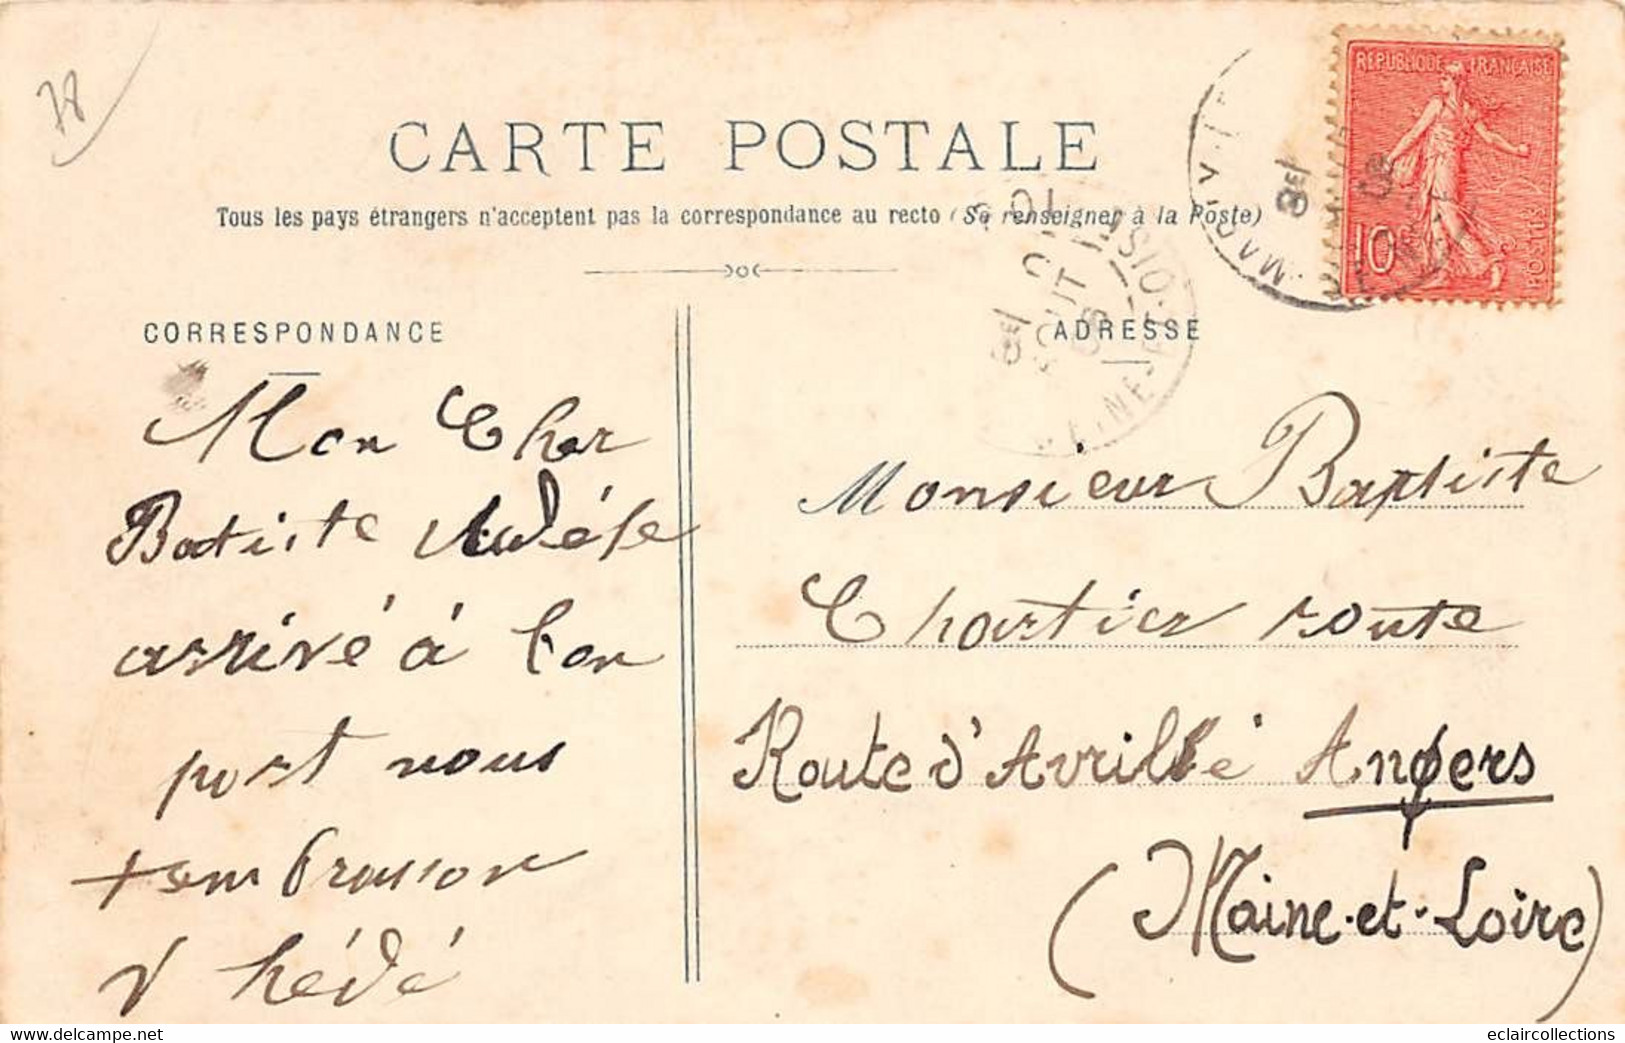 78
CARTE POSTALE
Tous les pays étrangers n'acceptent pas la correspondance au recto (Se renseigner à la Poste)
CORRESPONDANCE
ADRESSE
REPUBLIQUE FRANÇAISE
10
POSTES
Mon Cher
Batiste Adéle
arrivé à bon
port nous
tembrasson
hédé
Monsieur Baptiste
Chartier route
Route d'Avrillé Angers
(Maine-et-Loire)
www.delcampe.net
eclaircollections